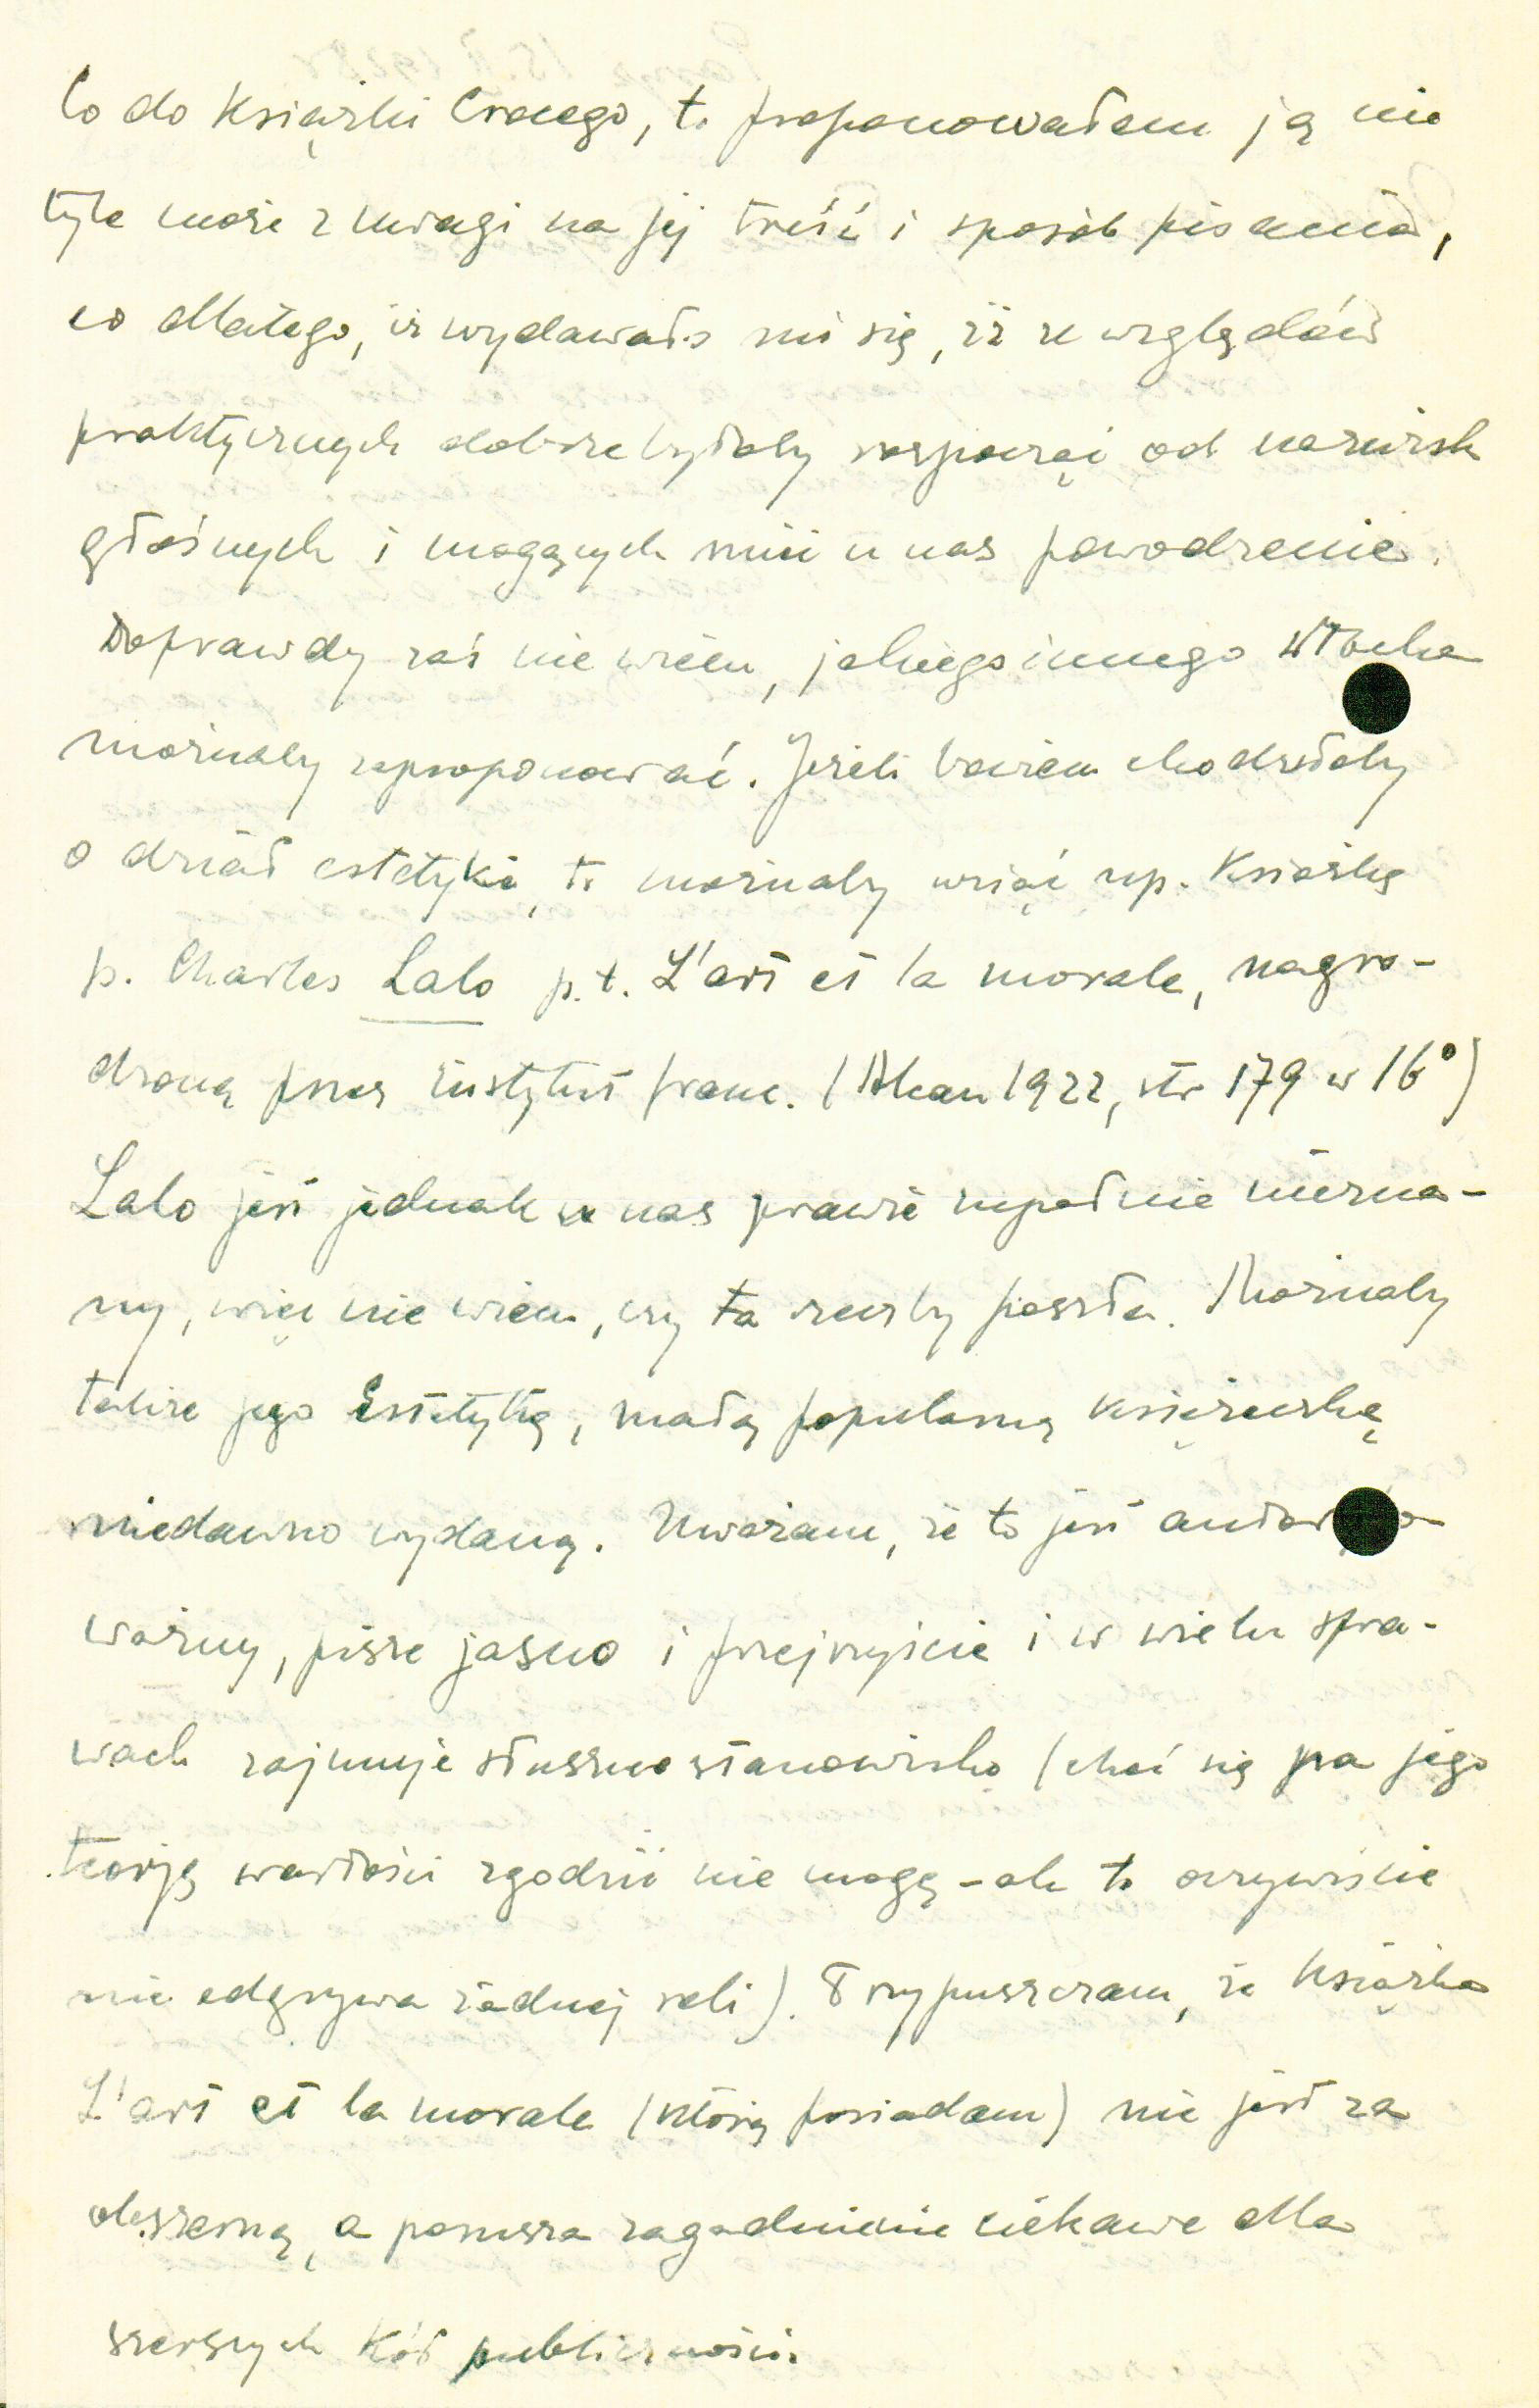 Co do książki Crocego, to proponowałem ją nie
tyle może z uwagi na jej treść i sposób pisania,
co dlatego, iż wydawało mi się, iż ze względów
praktycznych dobrze byłoby rozpocząć od nazwisk
głośnych i mogących mieć u nas powodzenie.
Doprawdy zaś nie wiem, jakiego innego Włocha
możnaby zaproponować. Jeżeli bowiem chodziłoby
o dział estetyki, to możnaby wziąć np. książkę
p. Charles Lalo p.t. L'art et la morale, nagro-
dzoną przez Instytut franc. (Alcan 1922, str 179 w 16°)
Lalo jest jednak u nas prawie zupełnie niezna-
ny, więc nie wiem, czy ta rzecz by poszła. Możnaby
także jego Estetykę, małą popularną książeczkę
niedawno wydaną. Uważam, że to jest autor
ważny, pisze jasno i przejrzyście i w wielu spra-
wach zajmuje słuszne stanowisko (choć się na jego
teorję wartości zgodzić nie mogę - ale to oczywiście
nie odgrywa żadnej roli). Przypuszczam, że książka
L'art et la morale (którą posiadam) nie jest za
obszerną, a porusza zagadnienie ciekawe dla
szerszych kół publiczności.